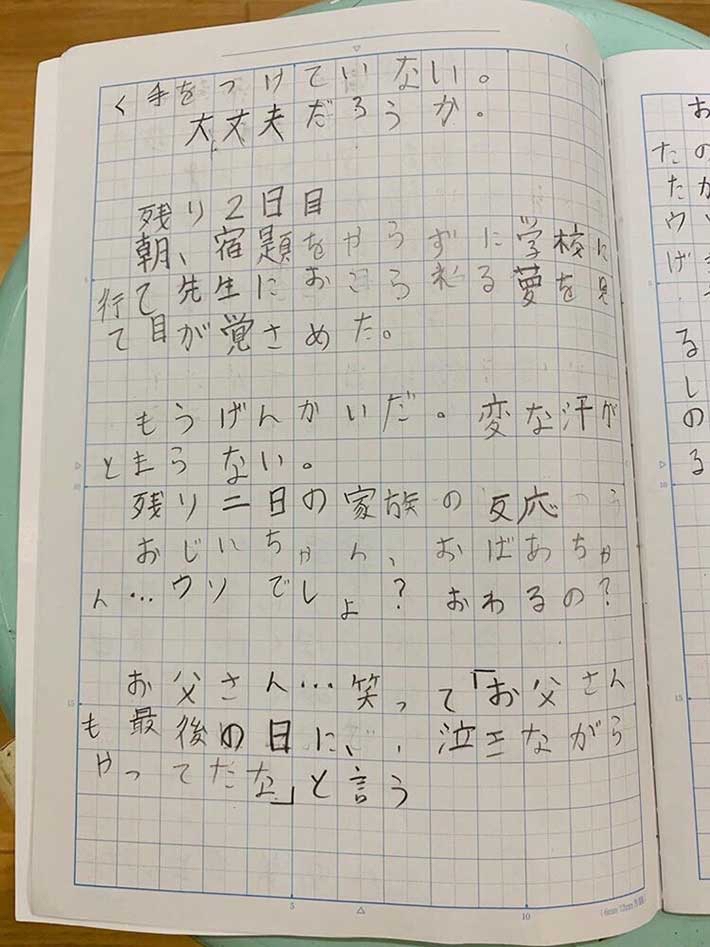 く手をつけていない。
大丈夫だろうか。
残り2日目
朝、宿題をやらずに学校に
行て先生におこられる夢を見
て目が覚さめた。
もうげんかいだ。変な汗が
とまらない。
残り二日の家族の反応
おじいちゃん、おばあちゃ
ん…ウソでしょ?おわるの?
お父さん…笑って「お父さん
も最後の日に、泣きながら
やってたな」と言う
5
10
15
5
10
10
15
お
たの
たか
ウい
げ
るし
の
る